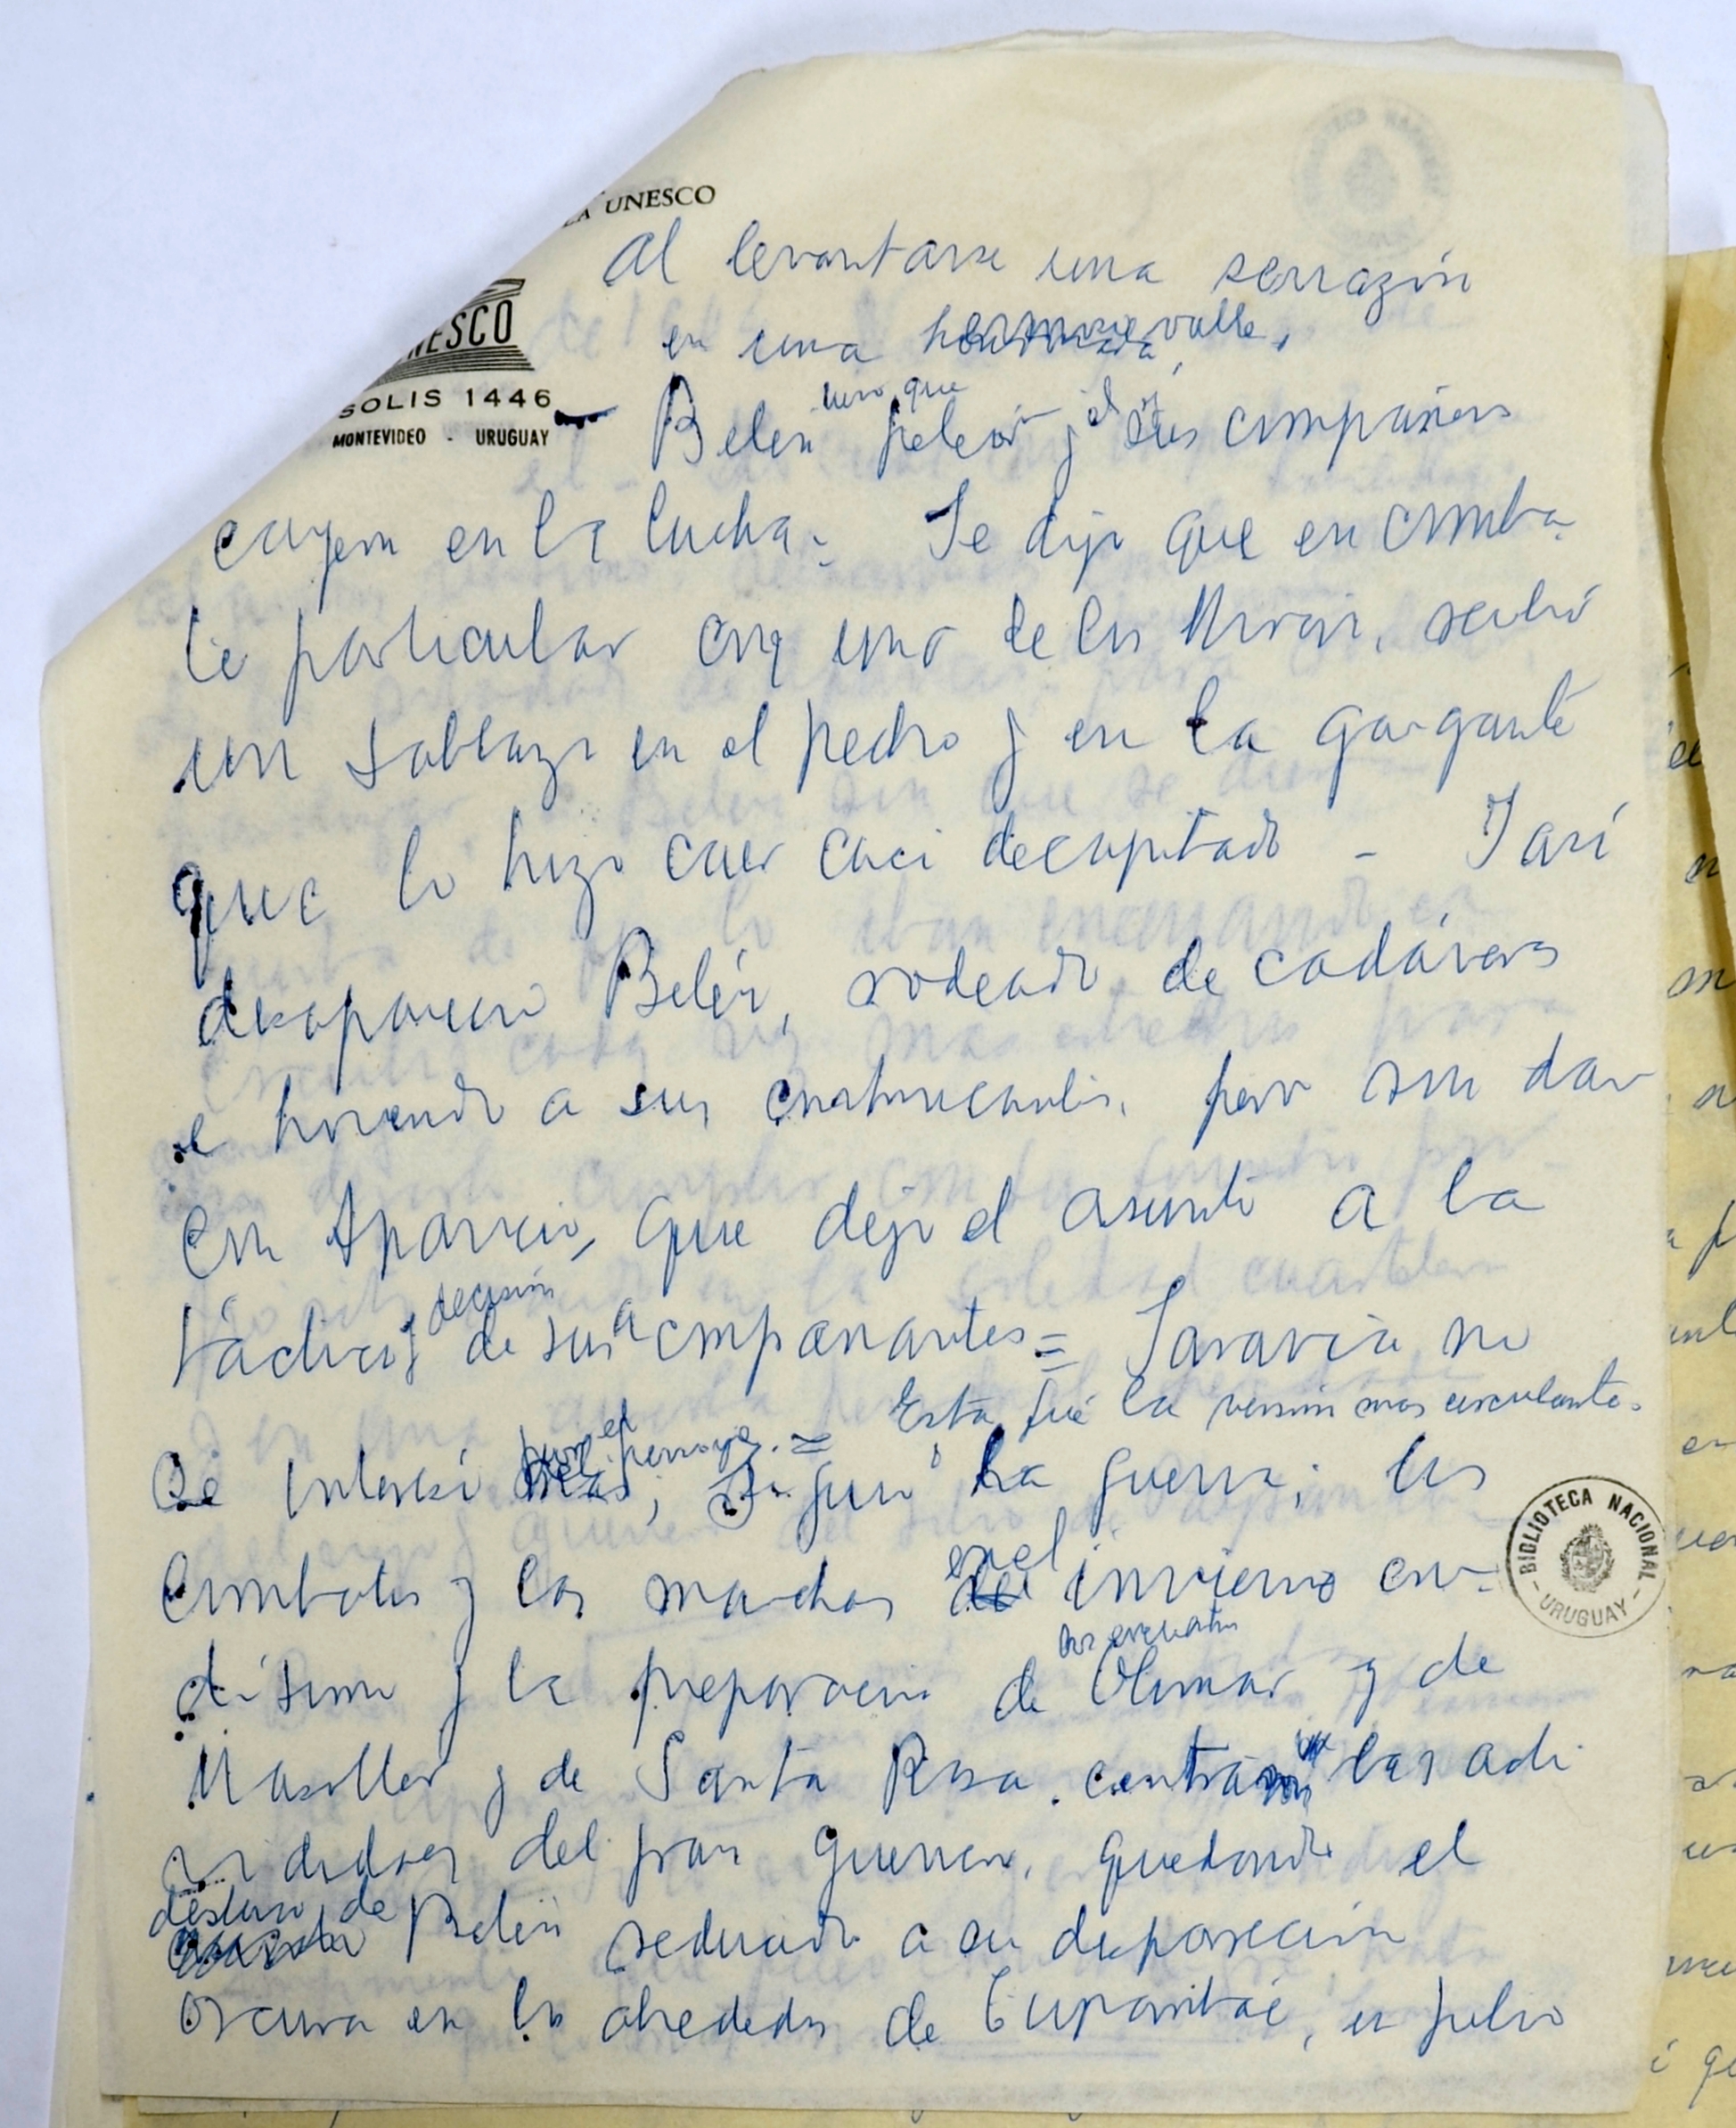 LA UNESCO
NESCO
SOLIS 1446
MONTEVIDEO - URUGUAY
Al levantarse una serrazón
en una valle,
Belén tuvo que pelear y él y sus compañeros
cayeron en la lucha. Se dijo que en comba-
te particular con uno de los, recibió
un sablazo en el pecho y en la garganta
que lo hizo caer caci decapitado - Y así
desapareció Belén, rodeado de cadáveres
e hiriendo a sus, pero sin dar
con Aparicio, que dejó el asunto a la
táctica y decisión de sus acompañantes = Saravia no
se interesó por el personaje. = Esta fué la versión mas circulante.
Siguió la guerra; los
combates y las marchas en el invierno cru-
dísimo y la preparación de los encuentros de Olimar y de
Masoller y de Santa Rosa. centraron las acti-
vidades del gran guerrero, quedando el
destino de Belén reducido a su desaparición
oscura en los alrededores de Tupambaé, en pelea
BIBLIOTECA NACIONAL
- URUGUAY -